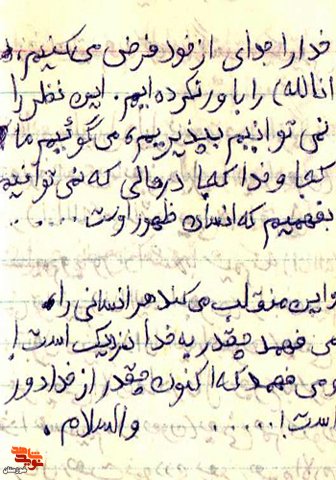 خدا را جدای از خود فرض می‌کنیم،
انالله) را باور نکرده‌ایم. این نظر را
نمی توانیم بپذیریم، می‌گوئیم ما
کجا و خدا کجا درحالی که نمی توانیم
بفهمیم که انسان ظهور اوست.....
این منقلب می‌کند هر انسانی را،
می فهمد چقدر به خدا نزدیک است!
و می فهمد که اکنون چقدر از خدا دور
است!..... والسلام.
نوید شاهد
خوزستان